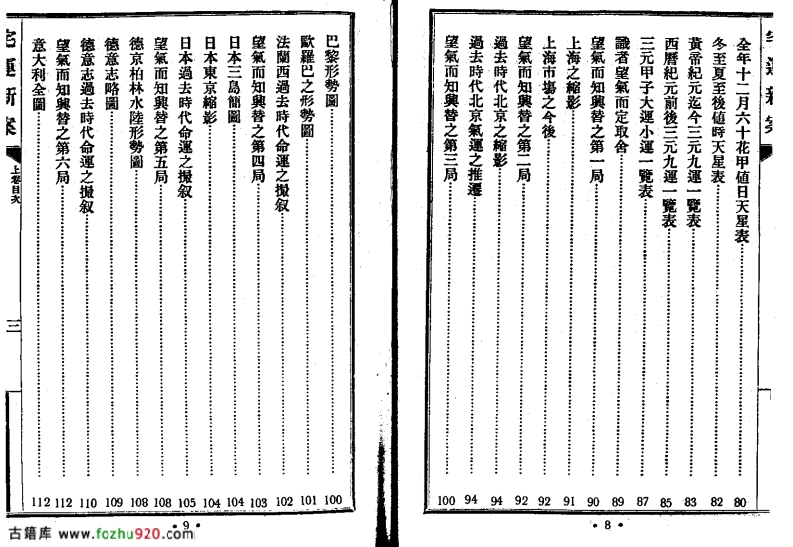 宅運新案
全年十二月六十花甲值日天星表 80
冬至夏至後值時天星表 82
黃帝紀元迄今三元九運一覽表 83
西曆紀元前後三元九運一覽表 85
三元甲子大運小運一覽表 87
識者望氣而定取舍 89
望氣而知興替之第一局 90
上海之縮影 91
上海市場之今後 92
望氣而知興替之第二局 92
過去時代北京之縮影 94
過去時代北京氣運之推遷 94
望氣而知興替之第三局 100
• 8 •
巴黎形勢圖 100
歐羅巴之形勢圖 101
法蘭西過去時代命運之撮叙 102
望氣而知興替之第四局 103
日本三島簡圖 104
日本東京縮影 104
日本過去時代命運之撮叙 105
望氣而知興替之第五局 108
德京柏林水陸形勢圖 108
德意志略圖 109
德意志過去時代命運之撮叙 110
望氣而知興替之第六局 112
意大利全圖 112
宅運新案
上卷目次
三
• 9 •
古籍库 www.fozhu920.com